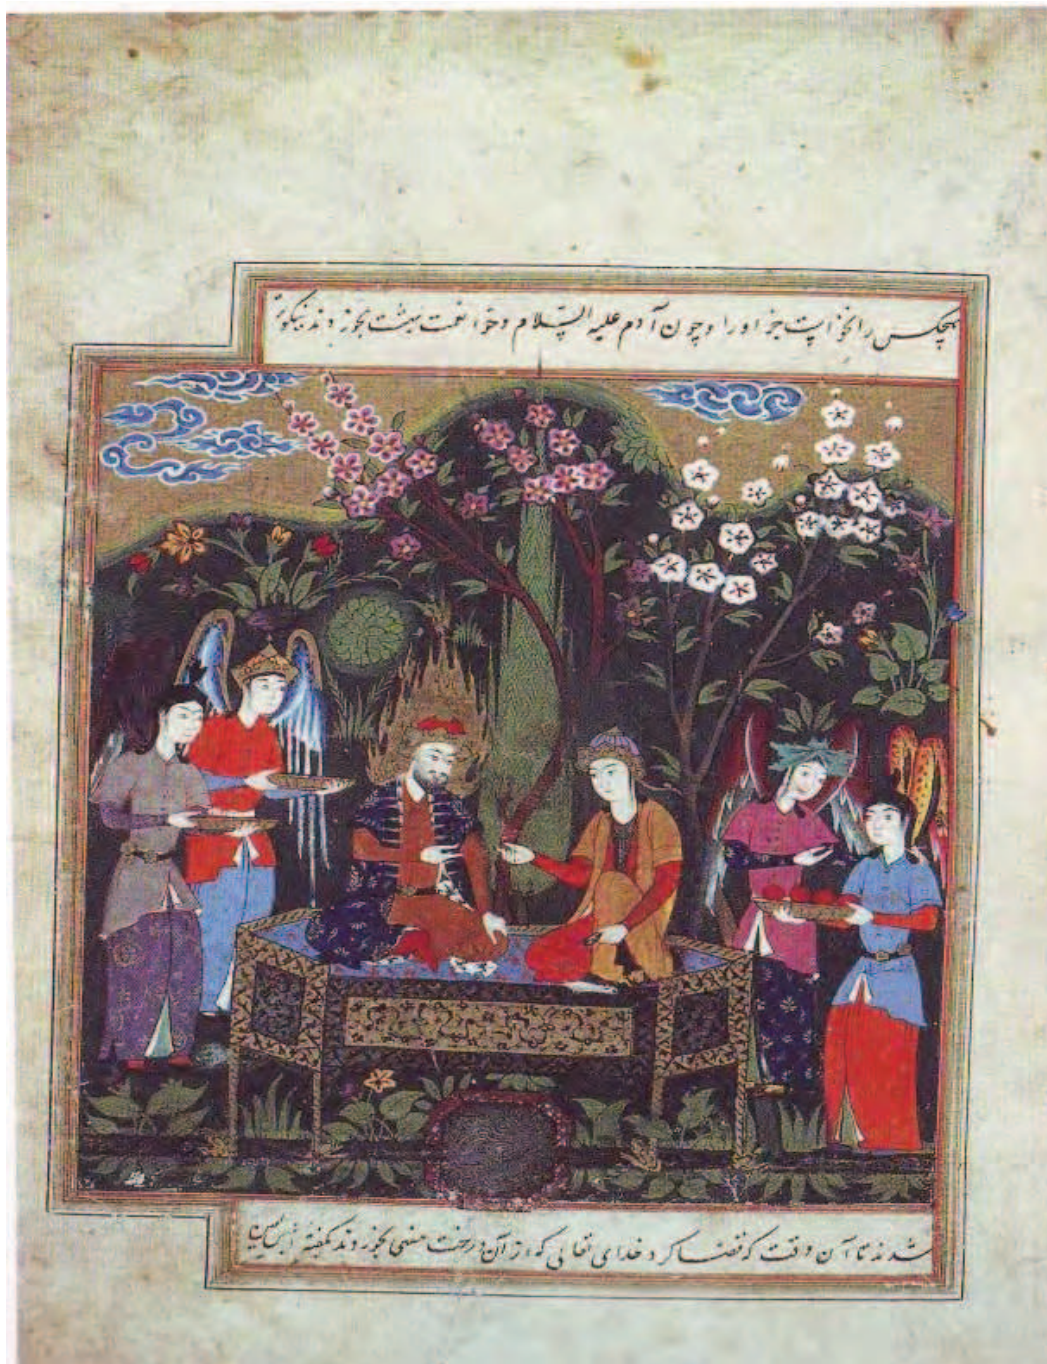 هیچکس را نخواست جز او را و چون آدم علیه السّلام و حوّا نعمت بهشت بخوردند نیکو
شدند تا آن وقت که قضا کرد خدای تعالی که از آن درخت منهی بخوردند بگفتهٔ ابلیس